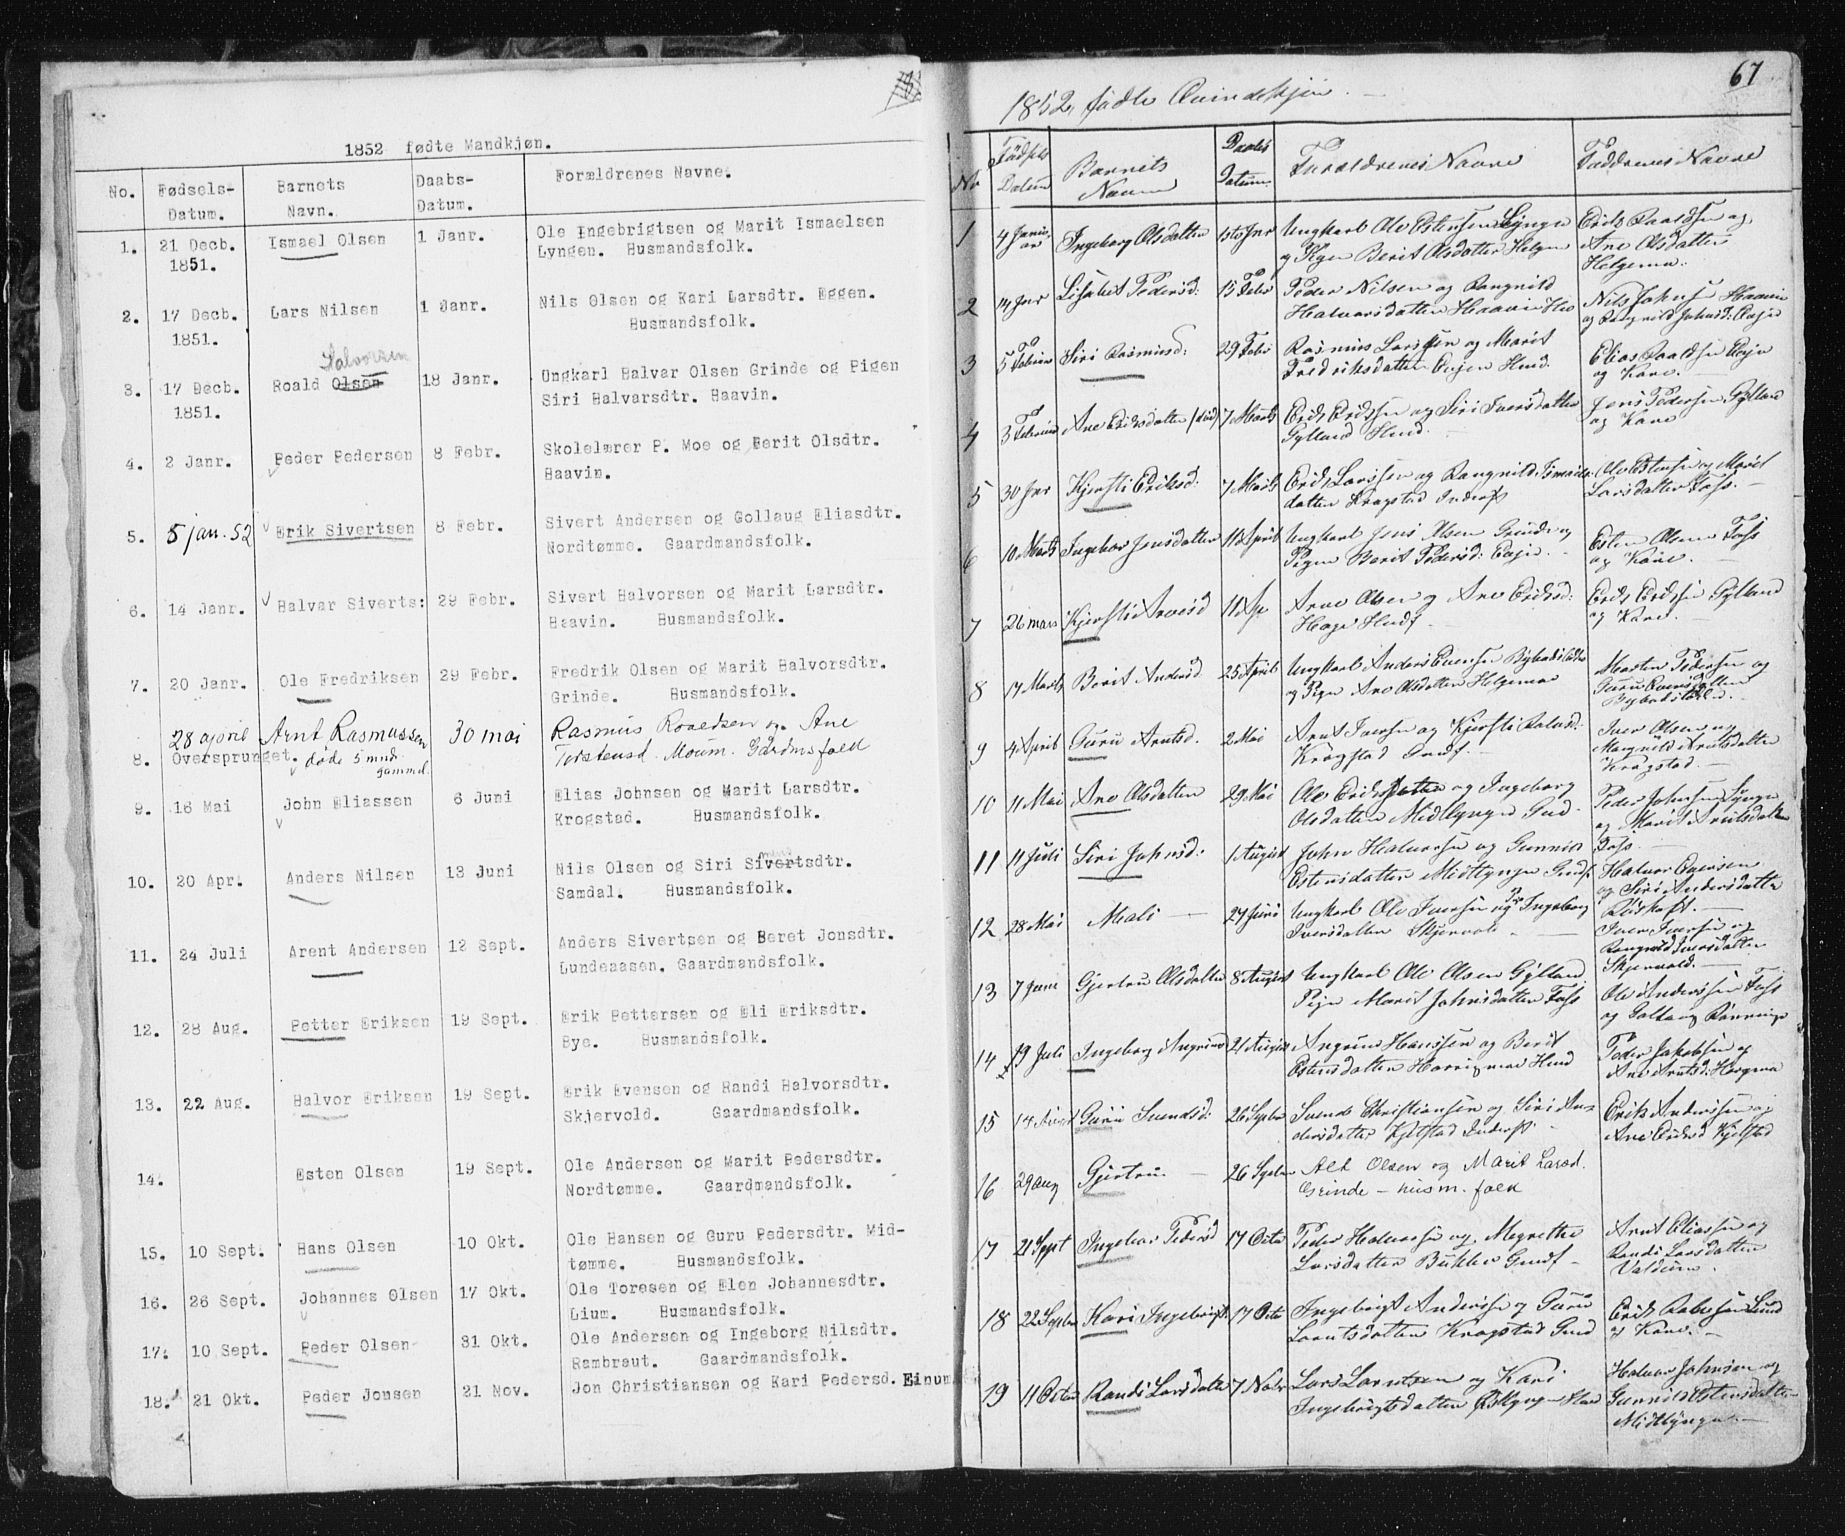 1852 fødte Mandkjøn.
No. Fødsels-Datum. Barnets Navn. Daabs-Datum. Forældrenes Navne.
1. 21 Decb. Ismael Olsen 1 Janr. Ole Ingebrigtsen og Marit Ismaelsen
1851. Lyngen. Husmandsfolk.
2. 17 Decb. Lars Nilsen 1 Janr. Nils Olsen og Kari Larsdtr. Eggen.
1851. Husmandsfolk.
Halvorsen
3. 17 Decb. Roald Olsen 18 Janr. Ungkarl Halvar Olsen Grinde og Pigen
1851. Siri Halvarsdtr. Haavin.
4. 2 Janr. Peder Pedersen 8 Febr. Skolelærer P. Moe og Berit Olsdtr.
Haavin.
5. 5 jan. 52 Erik Sivertsen 8 Febr. Sivert Andersen og Gollaug Eliasdtr.
Nordtømme. Gaardmandsfolk.
6. 14 Janr. Halvar Siverts: 29 Febr. Sivert Halvorsen og Marit Larsdtr.
Haavin. Husmandsfolk.
7. 20 Janr. Ole Fredriksen 29 Febr. Fredrik Olsen og Marit Halvorsdtr.
Grinde. Husmandsfolk.
28 april Arnt Rasmussen 30 mai Rasmus Roaldsen og Ane
8. Oversprunget. døde 5 mnd. gammel. Torstensd. Moum. Gardmsfolk
9. 16 Mai John Eliassen 6 Juni Elias Johnsen og Marit Larsdtr.
Krogstad. Husmandsfolk.
10. 20 Apr. Anders Nilsen 13 Juni Nils Olsen og Siri Sivertsdtr.
Samdal. Husmandsfolk.
11. 24 Juli Arent Andersen 12 Sept. Anders Sivertsen og Beret Jonsdtr.
Lundeaasen. Gaardmandsfolk.
12. 28 Aug. Petter Eriksen 19 Sept. Erik Pettersen og Eli Eriksdtr.
Bye. Husmandsfolk.
13. 22 Aug. Halvor Eriksen 19 Sept. Erik Evensen og Randi Halvorsdtr.
Skjervold. Gaardmandsfolk.
14. Esten Olsen 19 Sept. Ole Andersen og Marit Pedersdtr.
Nordtømme. Gaardmandsfolk.
15. 10 Sept. Hans Olsen 10 Okt. Ole Hansen og Guru Pedersdtr. Mid-
tømme. Husmandsfolk.
16. 26 Sept. Johannes Olsen 17 Okt. Ole Toresen og Elen Johannesdtr.
Lium. Husmandsfolk.
17. 10 Sept. Peder Olsen 31 Okt. Ole Andersen og Ingeborg Nilsdtr.
Rambraut. Gaardmandsfolk.
18. 21 Okt. Peder Jonsen 21 Nov. Jon Christiansen og Kari Pedersd. Einum
67
1852, fødte Qvindekjøn.
Nr Fødsels Datum Barnets Navn Daabs Datum Forældrenes Navne Faddrenes Navne
1 4 Janu- Ingeborg Olsdatter Jnr Ungkarl Ole Estensen Lynge Erik Roaldsen og
ar og Pigen Berit Olsdatter Helgem Ane Olsdatter
Helgemo.
2 14 Jnr Lisabet Pedersd: 15 Febr Peder Nilsen og Rangnild Nils Johnsen Haavin
Halvarsdatter Haavin og Rangnild Johnsd:
3 5 Februar Siri Rasmusd: 29 Febr Rasmus Larssen og Marit Elias Roaldsen
Fredriksdatter Husd. og Kone.
4 3 Februar Ane Eriksdatter 7 Marts Erik Erikssen og Siri Iversdatter Jens Pedersen Gylland
Gylland Husd. og Kone
5 30 Jnr Kjersti Eriksd: 7 Marts Erik Larssen og Rangnild Ole Estensen og Marit
datter Kragstad Larsdatter Foss.
6 10 Marts Ingebor Jensdatter 11 April Ungkarl Jens Olsen Grinde og Esten Olsen Foss
Pigen Berit Pedersd: og Kone.
7 26 mars Kjersti Arnesd 11 Ap Arne Olsen og Ane Eriksd: Erik Erikssen Gylland
Hage Husf. og Kone.
8 17 Marts Berit Andersd 25 April Ungkarl Anders Evensen Morten Pedersen og
og Pige Ane Olsdatter Helgemo Guru Evensdatter
9 4 April Guru Arntsd. 2 Mai Arnt Iversen og Kjersti Iver Olsen og
Kragstad Husf. Rangnild Arntsdatter
Kragstad.
10 11 Mai Ane Olsdatter 29 Mai Ole og Ingeborg Peder Johnsen Lynge
Olsdatter Midtlyngen og Marit
Foss.
11 11 Juli Siri Johnsd: 1 August John Halvorsen og Gunnild Halvor Evensen
Estensdatter Midtlyngen og Siri Andersdatter
12 28 Mai Mali 27 Juni Ungkarl Ole Iversen og Ingeborg Iver Iversen og
Iversdatter Skjervold Rangnild Iversdatter
Skjervold.
13 7 Juni Gjertru Olsdatter 8 August Ungkarl Ole Olsen Gylland Ole Andersen Foss
Pige Marit Johnsdatter Foss og
14 19 Juli Ingeborg 21 August Hanssen og Berit Peder Jakobsen og
Estensdatter Ane Arntsd:
15 14 August Guru Svendsd: 26 Sepbr Svend Christiansen og Siri An- Erik Anderssen og
dersdatter Kjelstad Ane Eriksd Kjelstad
16 29 aug Gjertru 26 Sepbr Olsen og Marit Larsd.
Grinde – husm. folk
17 21 Sept Ingebor Pedersd 17 Octo Peder Halvorsen og Megrethe Arnt Eliassen og
Larsdatter Randi Larsdatter
Valdum.
18 22 Sepbr Kari Ingebrigts 17 Octo Ingebrigt Anderssen og Guru Erik
Larntsdatter Kragstad og Kone.
19 11 Octo Randi Larsdatter 7 Nobr Lars Larntsen og Kari Halvor Johnsen og
Ingebrigtsdatter Gunnild Estensdatter
Midtlyngen